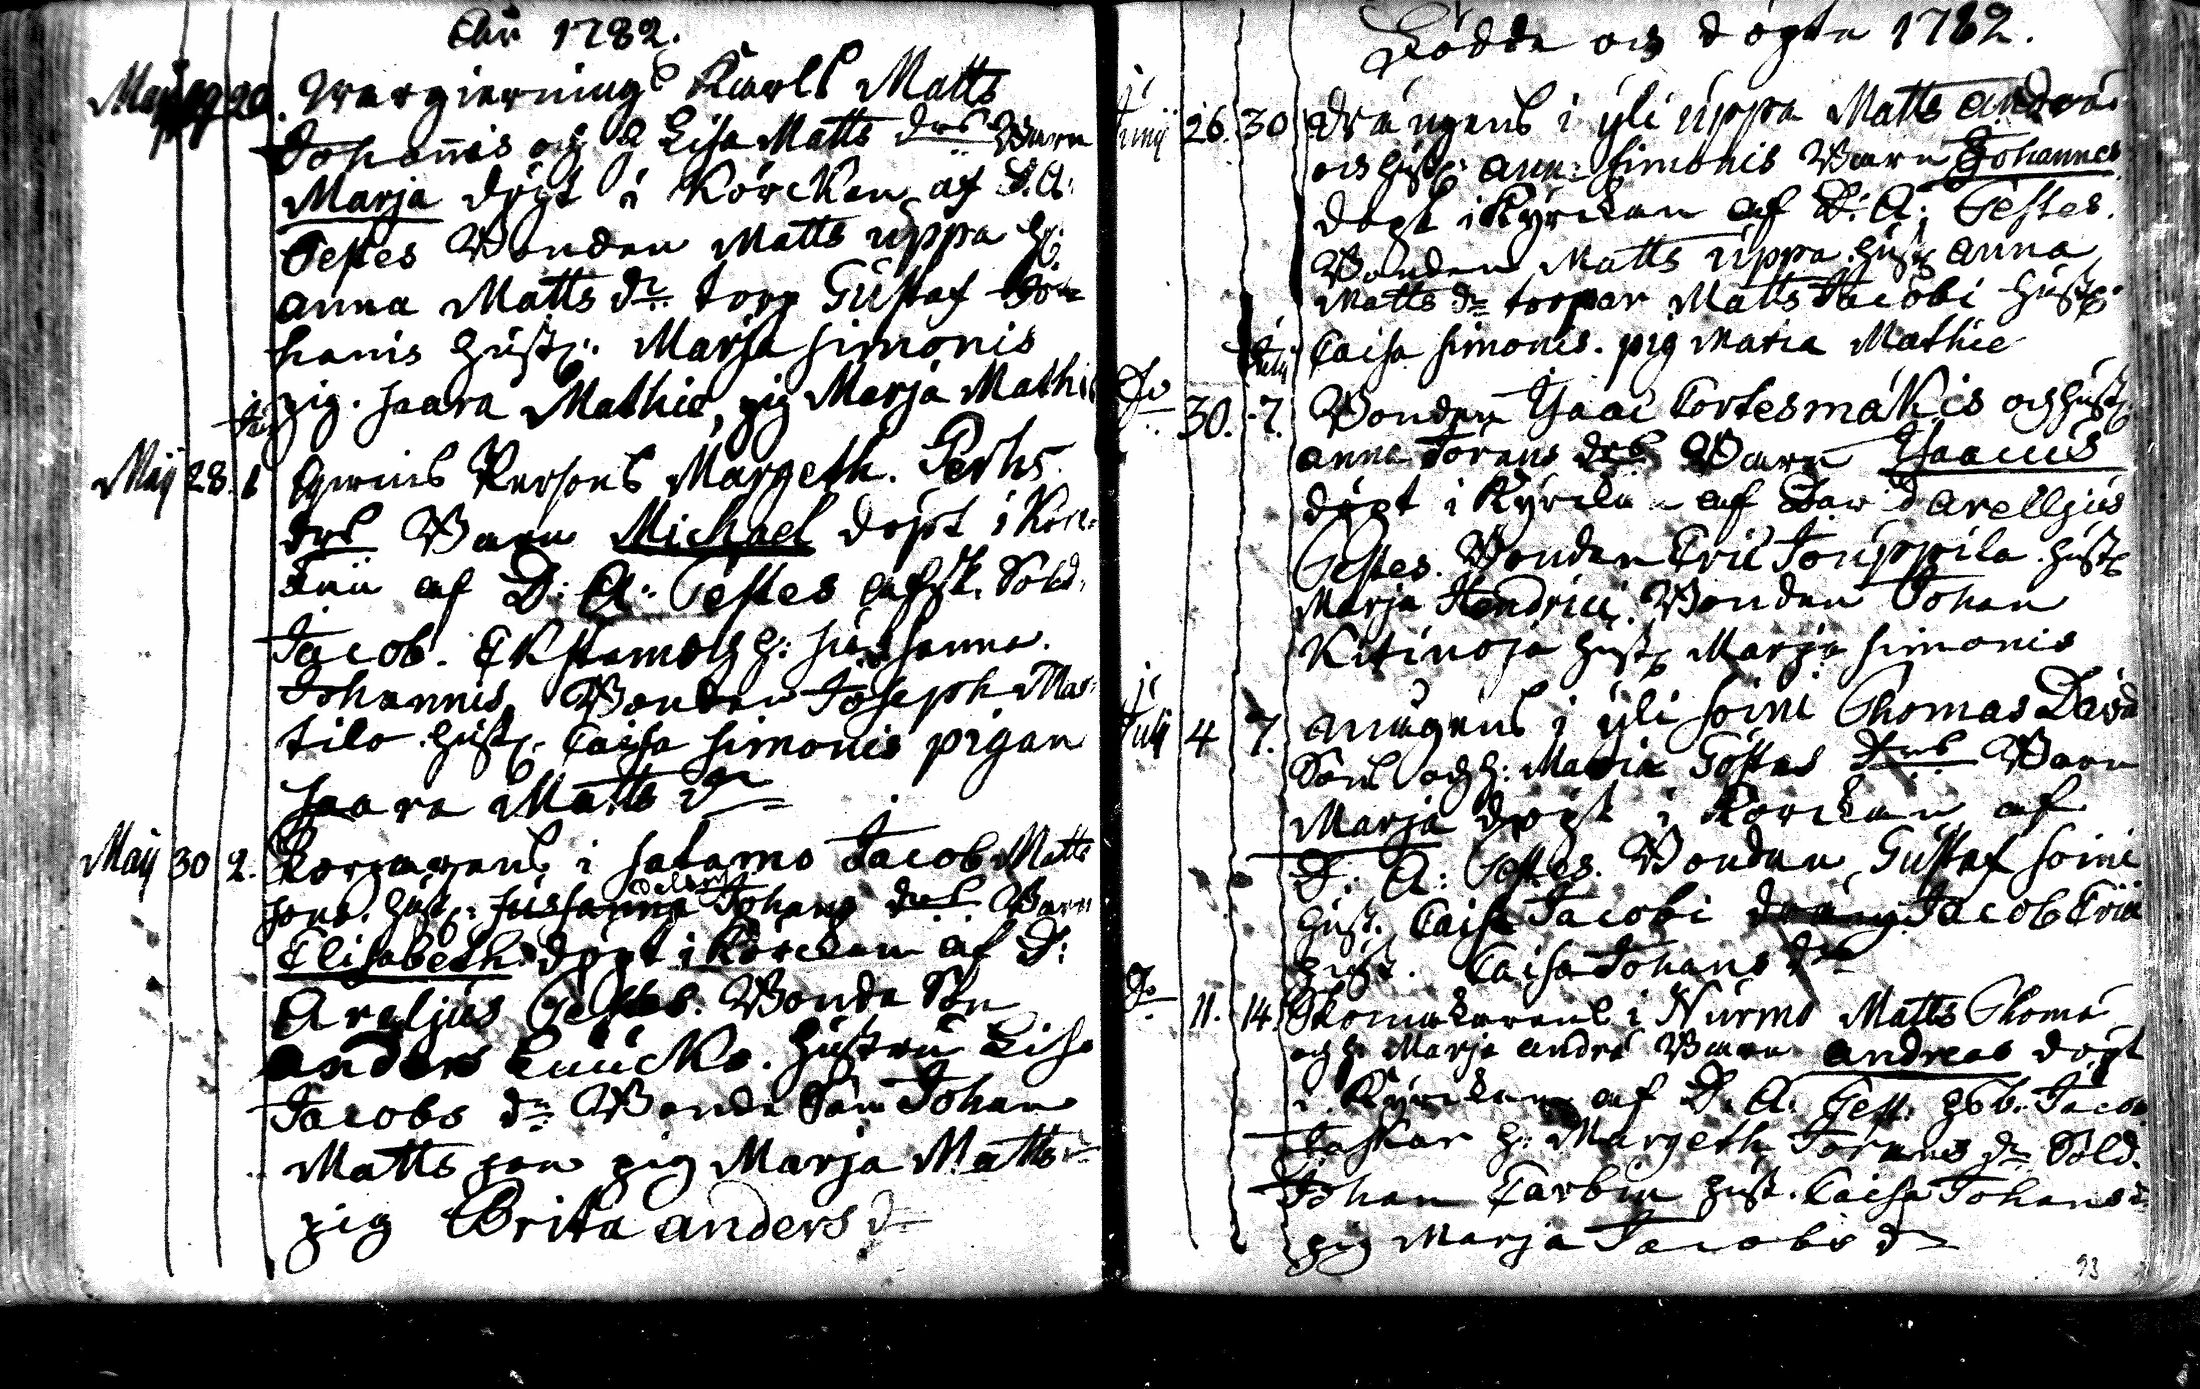 Åhr 1782.
May 19 20. Matts
Johannis och h Lisa Matts drs Barn
Marja döpt i Körckan af D. A.
Testes Bonden Matts uppa H:
Anna Matts dr. torp Gustaf Jo=
hanis Hust. Marja Simonis
pig. Saara Mathie, pig Marja Mathie
Maij 28. 1 Qwins Persons Margeth. Pehrs
drs Barn Michael döpt i
af D: A: Testes afsk. Sold.
Jacob. Ekstam och h: Sussanna
Johannis Bonden Joseph Mas=
tilo Hust. Caisa Simonis pigan
Saara Matts dr
Maij 30 2. Torparens i Salamo Jacob Matts
sons. Hust: Johans drs Barn
Elisabeth döpt i Körckan af D:
Areljus Testes. Bonde Son
Anders Luucko. Hustru Lisa
Jacobs dr Bonde Son Johan
Matts son pig Marja Matts dr
pig Brita Anders dr
Födde och döpte 1782.
Junij 26. 30 Drängens i Yli uppa Matts Andræ
och Hust. Ann: Simonis Barn Johannes
döpt i Kyrckan af D: A: Testes.
Bonden Matts uppa Hust Anna
Matts dr torpar Matts Jacobi Hust:
Julij Caisa Simonis. pig Maria Mathie
Do 30. 7. Bonden Ysaac Cortesmäkis och Hust.
Anna Jörans drs Barn Ysaacus
döpt i Kyrckan af Arelljus
Testes. Bonden Eric Jouppila Hust
Marja Hendrici. Bonden Johan
Kitinoja Hust Marja Simonis
Julij 4 7. Mågens i Yli Soini Thomas David
Sons och h: Maria Göstas drs Barn
Marja döpt i Körckan af
D: A: Testes. Bonden Gustaf Soini
Hust. Caisa Jacobi dräng Jacob Eric
Hust. Caisa Johans dr
Do 11. 14. Skomakarens i Nurmo Matts Thomæ
och h: Marja Andræ Barn Andreas döpt
i Kyrckan af D. A. Test. Jacob
h: Margeth Jörans dr Sold.
Johan Carbin Hust. Caisa Johans dr
pig Marja Jacobs dr
93